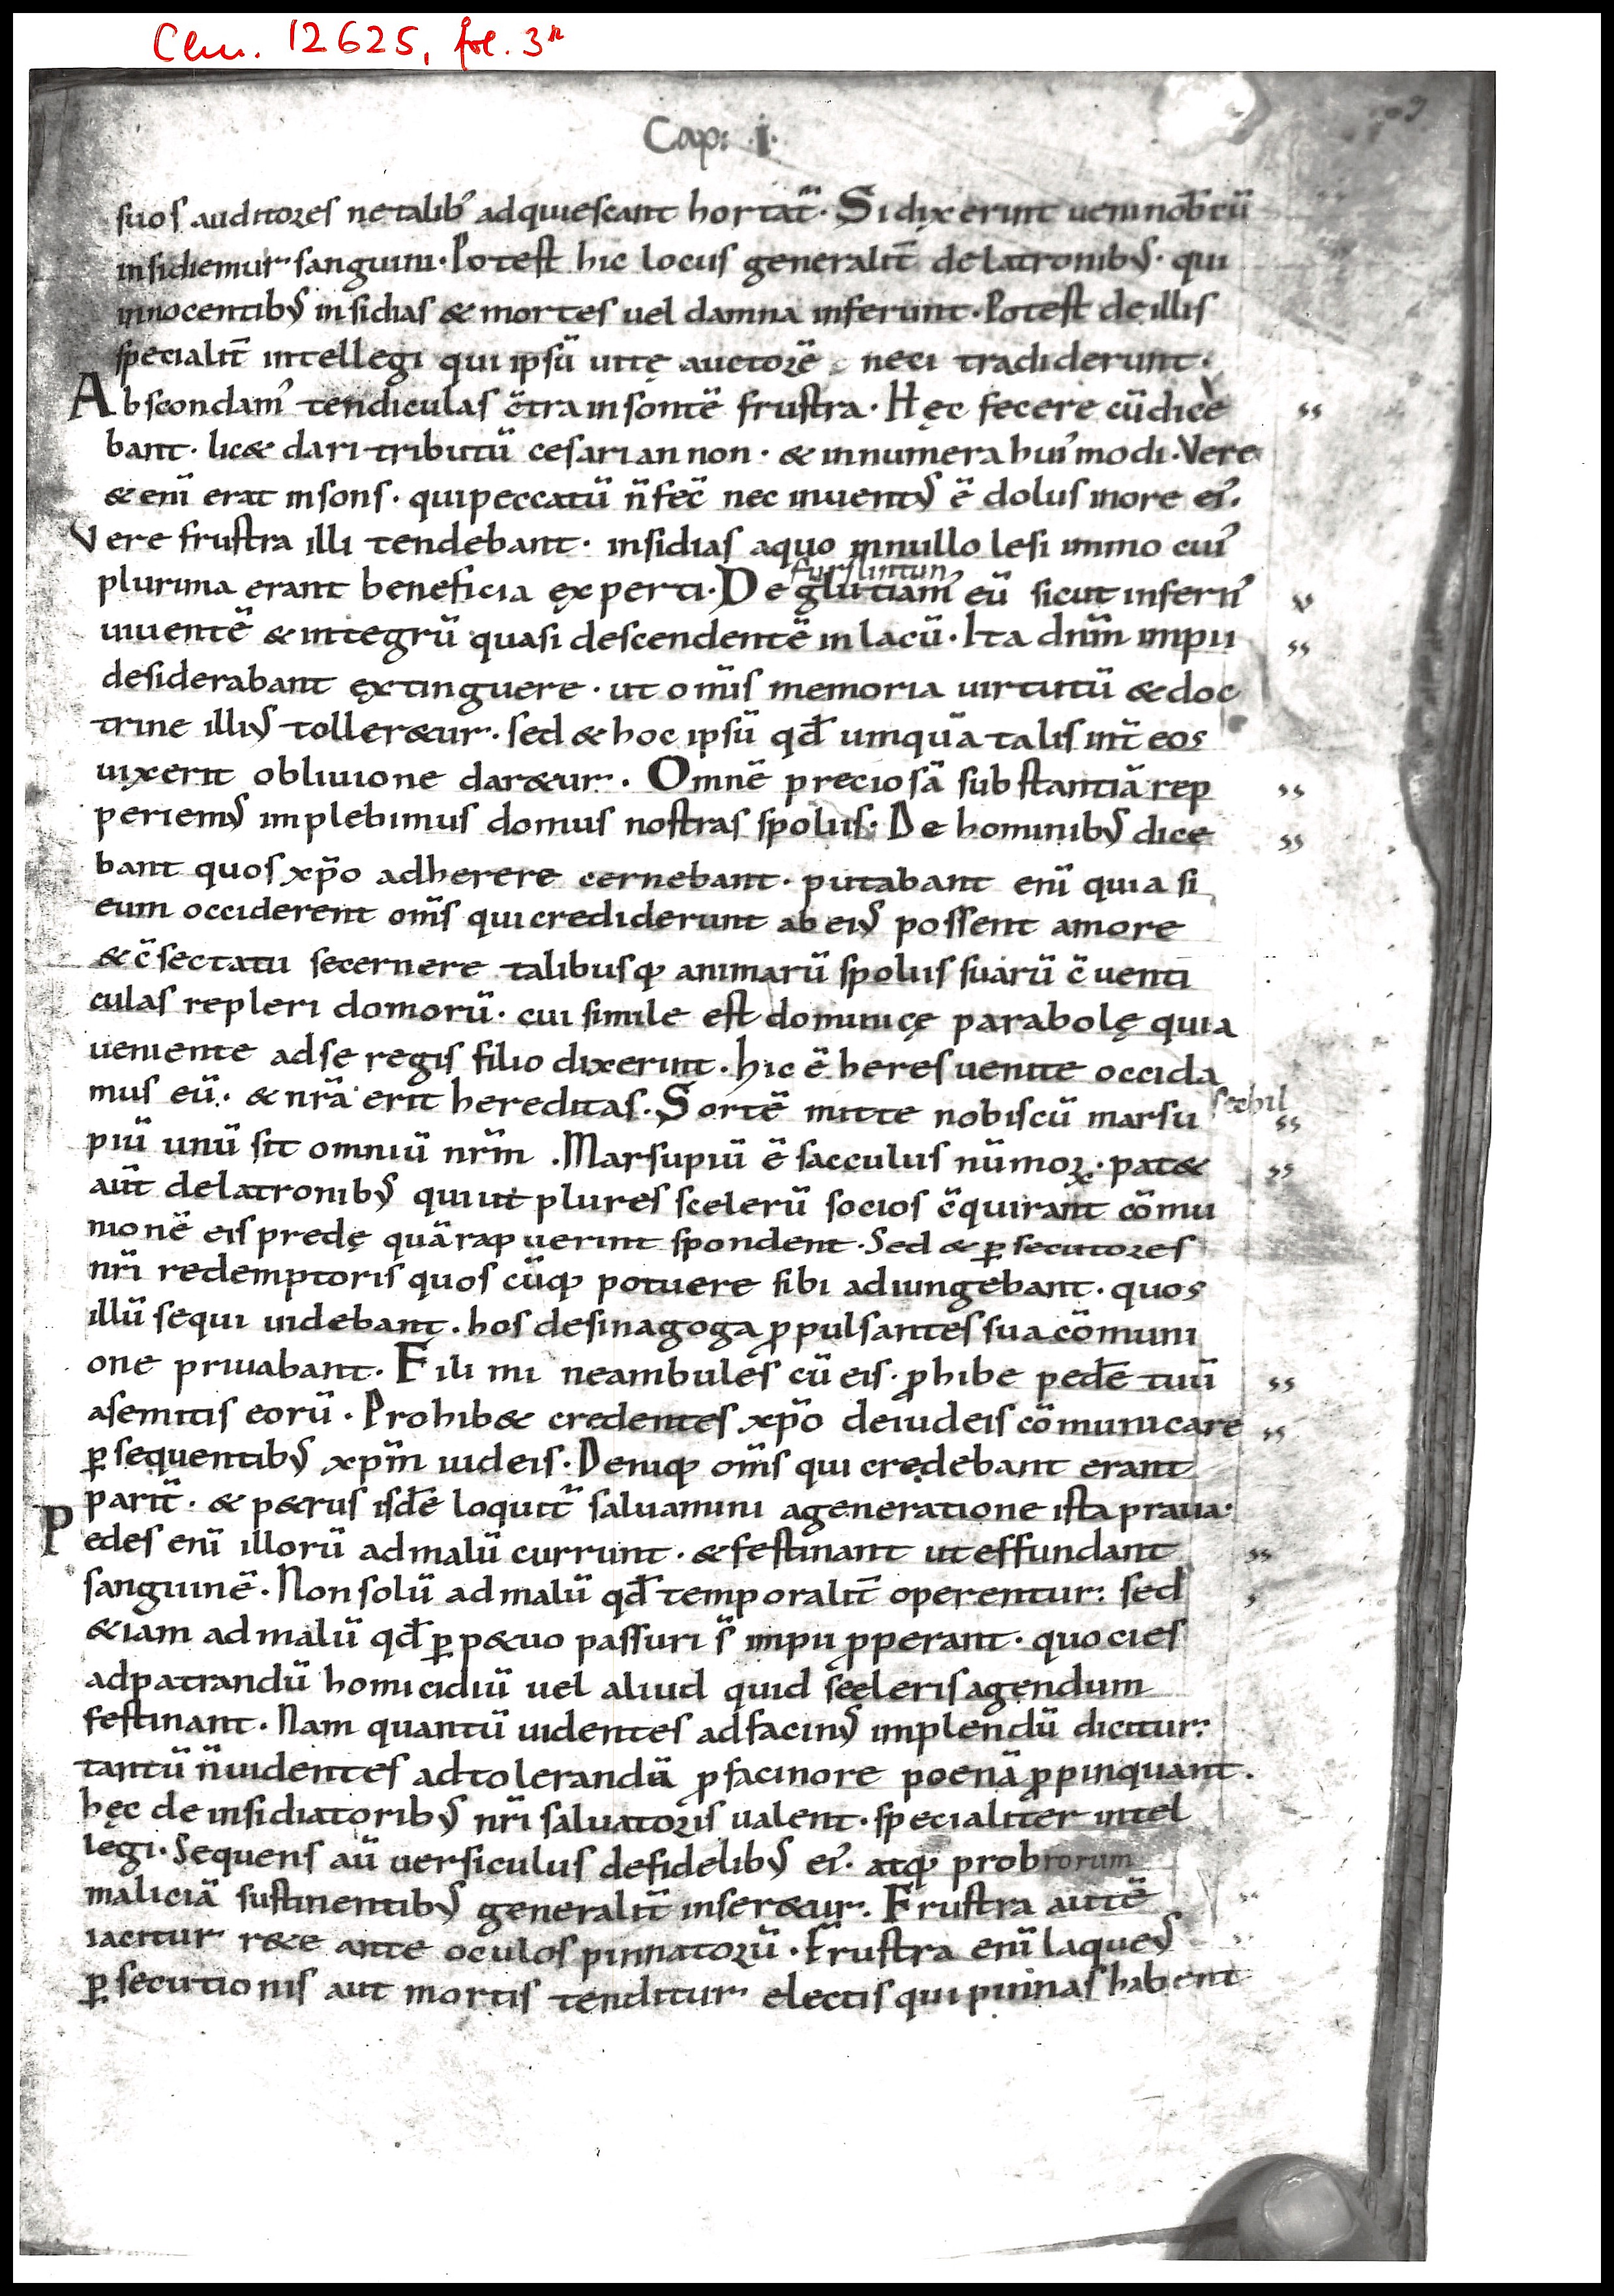 Clm. 12625, fol. 3r
Cap: ·i·
suos auditores ne talib' adquiescant hortat̄· Si dixerint ueni nob̄cū
insidiemur sanguini· Potest hic locus generalit̄ de latronibꝰ· qui
innocentibꝰ insidias & mortes uel damna inferunt· Potest de illis
specialit̄ intellegi qui ipsū uitę auctorē neci tradiderunt·
Abscondam' tendiculas c̄tra insontē frustra· Hęc fecere cū dice
bant· lic& dari tributū cesari an non· & innumera hui'modi· Vere
& enī erat insons· qui peccatū n̄ fec̄ nec inuentꝰ ē dolus in ore ei'·
Vere frustra illi tendebant· insidias a quo in nullo lesi immo cui'
fursluntun
plurima erant beneficia ęxperti· Deglutiam' eū sicut infern'
uiuentē & integrū quasi descendentē in lacū· Ita dn̄m impii
desiderabant ęxtinguere· ut om̄is memoria uirtutū & doc
trine illiꝰ toller&ur· sed & hoc ipsū qđ umquā talis int̄ eos
uixerit obliuione dar&ur· Omnē preciosā substantiā rep
periemꝰ implebimus domus nostras spoliis· De hominibꝰ dice
bant quos xp̄o adherere cernebant· putabant enī quia si
eum occiderent om̄s qui crediderunt ab eiꝰ possent amore
& c̄sectatu secernere talibusq; animarū spoliis suarū c̄uenti
culas repleri domorū· cui simile est dominicę parabolę quia
ueniente ad se regis filio dixerint· hic ē heres uenite occida
mus eū· & nr̄a erit hereditas· Sortē mitte nobiscū marsu sechil
piū unū sit omniū nr̄m· Marsupiū ē sacculus nūmoꝝ· pat&
aūt de latronibꝰ qui ut plures scelerū socios c̄quirant cōmu
nionē eis predę quā rapuerint spondent· Sed & ꝑsecutores
nr̄i redemptoris quos cūq; potuere sibi adiungebant· quos
illū sequi uidebant· hos de sinagoga ꝓpulsantes sua cōmuni
one priuabant· Fili mi ne ambules cū eis· ꝓhibe pedē tuū
a semitis eorū· Prohib& credentes xp̄o de iudeis cōmunicare
ꝑsequentibꝰ xp̄m iudeis· Deniq; om̄s qui credebant erant
parit̄· & p&rus isdē loquit̄ saluamini a generatione ista praua·
Pedes enī illorū ad malū currunt· & festinant ut effundant
sanguinē· Non solū ad malū qđ temporalit̄ operentur: sed
&iam ad malū qđ ꝑp&uo passuri s̄ impii ꝓperant· quocies
ad patrandū homicidiū uel aliud quid sceleris agendum
festinant· Nam quantū uidentes ad facinꝰ implendū dicitur:
tantū n̄ uidentes ad tolerandā ꝓ facinore poenā ꝓpinquant·
hęc de insidiatoribꝰ nr̄i saluatoris ualent· specialiter intel
legi· Sequens aū uersiculus de fidelibꝰ ei'· atq; probrorum
maliciā sustinentibꝰ generalit̄ inser&ur· Frustra autē
iacitur r&e ante oculos pinnatorū· Frustra enī laqueꝰ
ꝑsecutionis aut mortis tenditur electis qui pinnas habent